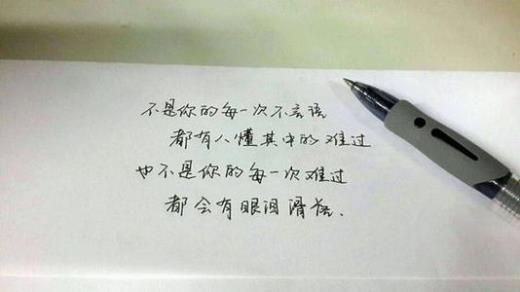 不是你的每一次不言语
都有人懂其中的难过
也不是你的每一次难过
都会有眼泪滑落.